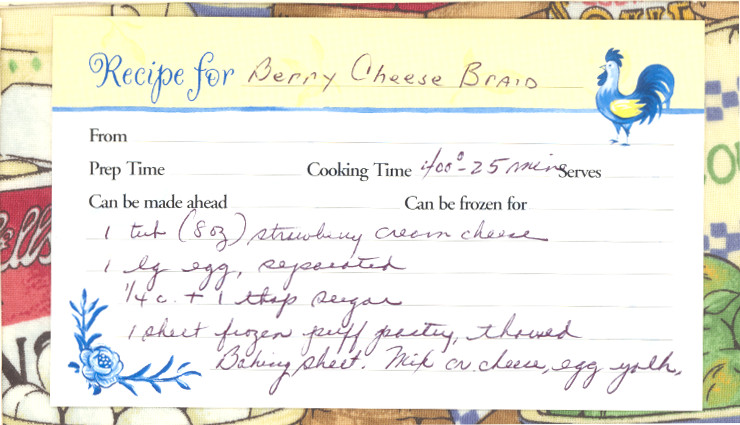 Recipe for Berry Cheese Braid
From
Prep Time Cooking Time 400° - 25 mins Serves
Can be made ahead Can be frozen for
1 tub (8 oz) strawberry cream cheese
1 lg egg, separated
1/4 c. + 1 tbsp sugar
1 sheet frozen puff pastry, thawed
Baking sheet. Mix cr. cheese, egg yolk,